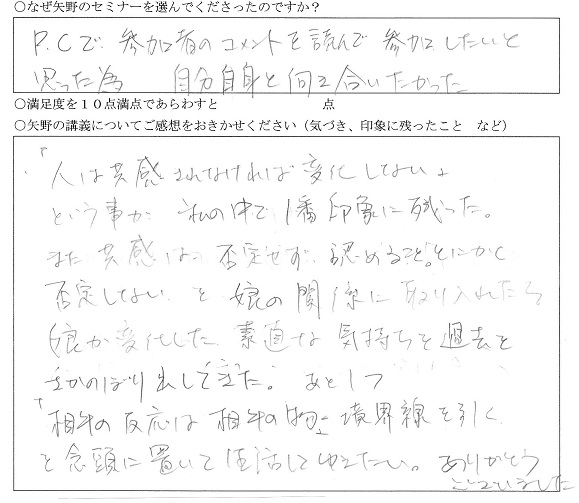 ○なぜ矢野のセミナーを選んでくださったのですか？
P.Cで 参加者のコメントを読んで 参加したいと
思った為 自分自身と向き合いたかった
○満足度を１０点満点であらわすと 点
○矢野の講義についてご感想をおきかせください（気づき、印象に残ったこと など）
「人は共感されなければ変化しない」
という事が 私の中で 1番印象に残った。
また 共感は 否定せず 認めること。とにかく
否定しない と 娘の関係に 取り入れたら
娘が変化した 素直な 気持ちを過去を
さかのぼり出してきた。 あと1つ
「相手の反応は 相手の物」 境界線を引く
と念頭に置いて生活してゆきたい。 ありがとう
ございました